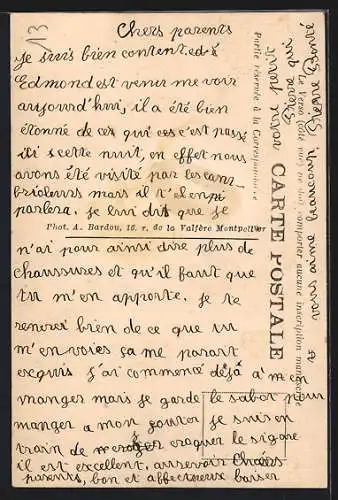 Chers parents
Je suis bien content. ed. g
Edmond est venu me voir
aujourd'hui, il a été bien
étonné de ces qui ces c'est passé
ili s cette nuit, en effet nous
avons été visité par les cam
brioleurs mais il t'el enpi
parlera. Je lui dit que je
Phot. A. Bardou, 16, r. de la Valfère Montpellier
n'ai pour ainsi dire plus de
chaussures et qu'il faut que
tu m'en apporte. Je te
remerci bien de ce que tu
m'en voies ça me parait
exquis j'ai commencé déjà a m'en
manger mais je garde le sabot pour
manger a mon gouter je suis en
train de croquer le sigare
il est excellent. aurevoir Chers
parents, bon et affectueux baiser
CARTE POSTALE
Partie réservée à la Correspondance
Le Verso (côté vue) ne doit comporter aucune inscription manuscrite
qui
vous aime beaucoup Pierre Bonté